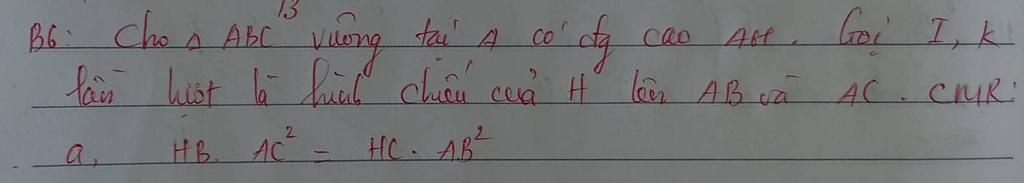 13
B6: Cho △ ABC vuông tại A có đg cao AH. Gọi I, K
lần lượt là hình chiếu của H lên AB và AC. CMR:
a, HB. AC² = HC. AB²